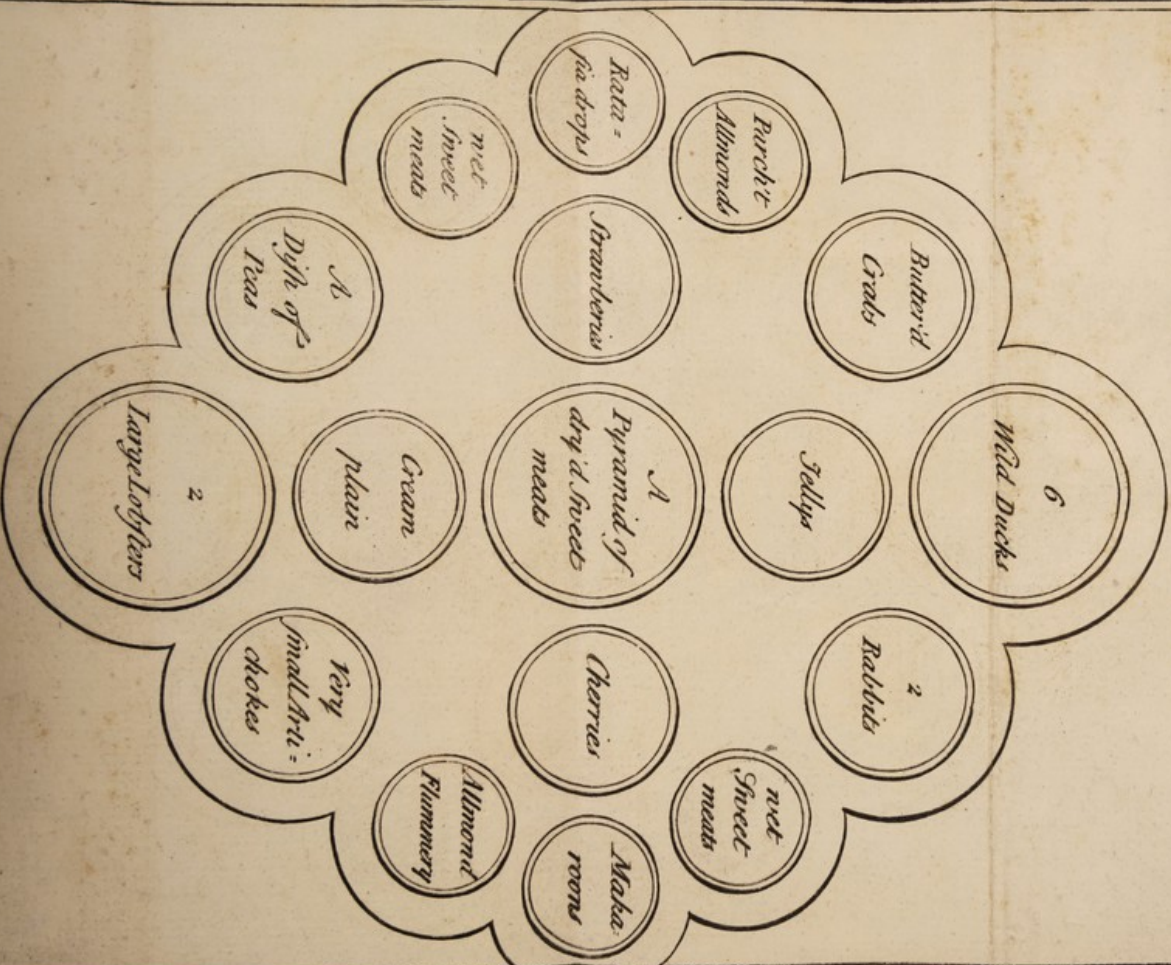 6
Wild Ducks
Butter'd
Crabs
2
Rabbits
Parch't
Allmonds
Jellys
wet
Sweet
meats
Rata=
fia drops
Strawberies
A
Pyramid of
dry'd Sweet
meats
Cherries
Maka=
rooms
wet
Sweet
meats
Cream
plain
Allmond
Flummery
A
Diſh of
Peas
Very
ſmall Arti=
chokes
2
Large Lobſters